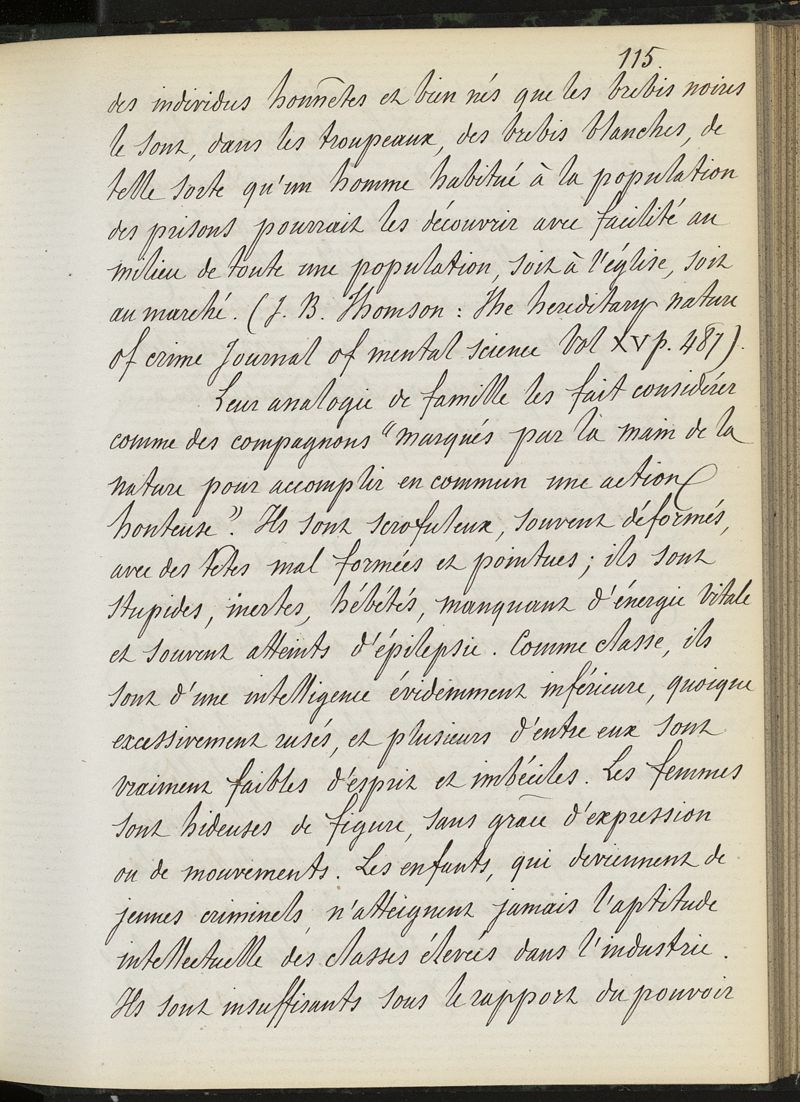 115.
des individus honnêtes et bien nés que les brebis noires
le sont, dans les troupeaux, des brebis blanches, de
telle sorte qu'un homme habitué à la population
des prisons pourrait les découvrir avec facilité au
milieu de toute une population, soit à l'église, soit
au marché. (J. B. Thomson : The hereditary nature
of crime Journal of mental science Vol XV p. 487).
Leur analogie de famille les fait considérer
comme des compagnons "marqués par la main de la
nature pour accomplir en commun une action
honteuse". Ils sont scrofuleux, souvent déformés,
avec des têtes mal formées et pointues ; ils sont
stupides, inertes, hébétés, manquant d'énergie vitale
et souvent atteints d'épilepsie. Comme classe, ils
sont d'une intelligence évidemment inférieure, quoique
excessivement rusés, et plusieurs d'entre eux sont
vraiment faibles d'esprit et imbéciles. Les femmes
sont hideuses de figure, sans grâce d'expression
ou de mouvements. Les enfants, qui deviennent de
jeunes criminels n'atteignent jamais l'aptitude
intellectuelle des classes élevées dans l'industrie.
Ils sont insuffisants sous le rapport du pouvoir